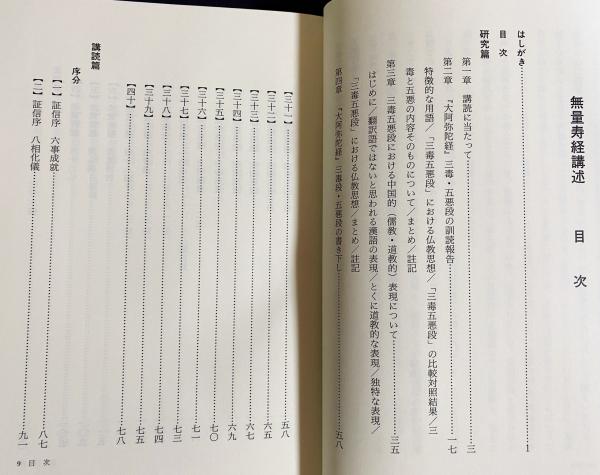 無量寿経講述　目次
はしがき……1
目次
研究篇
第一章　講読に当たって……三
第二章　『大阿弥陀経』三毒・五悪段の訓読報告……一七
特徴的な用語／「三毒五悪段」における仏教思想／「三毒五悪段」の比較対照結果／三
毒と五悪の内容そのものについて／まとめ／註記
第三章　三毒五悪段における中国的（儒教・道教的）表現について……三五
はじめに／翻訳語ではないと思われる漢語の表現／とくに道教的な表現／独特な表現／
「三毒五悪段」における仏教思想／まとめ／註記
第四章　『大阿弥陀経』三毒段・五悪段の書き下し……五八
【三十一】……五八
【三十二】……六五
【三十三】……六六
【三十四】……六九
【三十五】……七〇
【三十六】……七一
【三十七】……七三
【三十八】……七四
【三十九】……七五
【四十】……七八
講読篇
序分
【一】証信序　六事成就……八七
【二】証信序　八相化儀……九一
9　目次